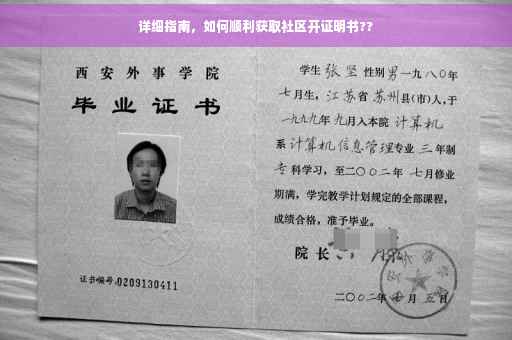 详细指南，如何顺利获取社区开证明书??
西安外事学院
毕业证书
证书编号:0209130411
学生 张坚 性别 男 一九八〇年
七月生，江苏省 苏州县(市)人，于
一九九九年 九月入本院 计算机
系 计算机信息管理专业 三 年制
专科学习，至二〇〇二年 七月修业
期满，学完教学计划规定的全部课程，
成绩合格，准予毕业。
院长
二〇〇二年 月五日